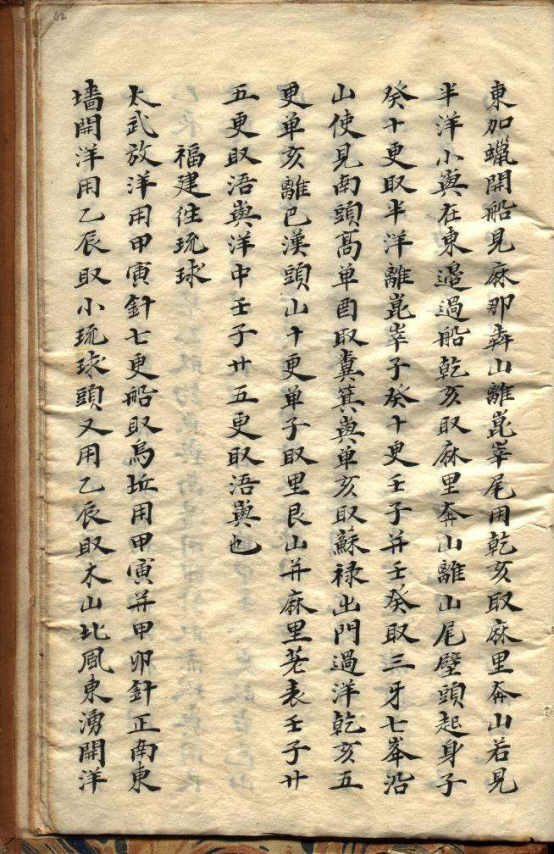 東加蠟開船見麻那犇山離崑峷尾用乾亥取麻里奔山若見
半洋小與在東邉過船乾亥取麻里奔山離山尾壁頭起身子
癸十更取半洋離崑峷子癸十更壬子并壬癸取三牙七峯沿
山使見南頭髙单酉取糞箕與单亥取蘇禄出門過洋乾亥五
更单亥離巴漢頭山十更单子取里艮山并麻里荖表壬子廿
五更取浯與洋中壬子廿五更取浯與也
福建徃琉球
太武放洋用甲寅針七更船取烏坵用甲寅并甲卯針正南東
墻開洋用乙辰取小琉球頭又用乙辰取木山北風東湧開洋